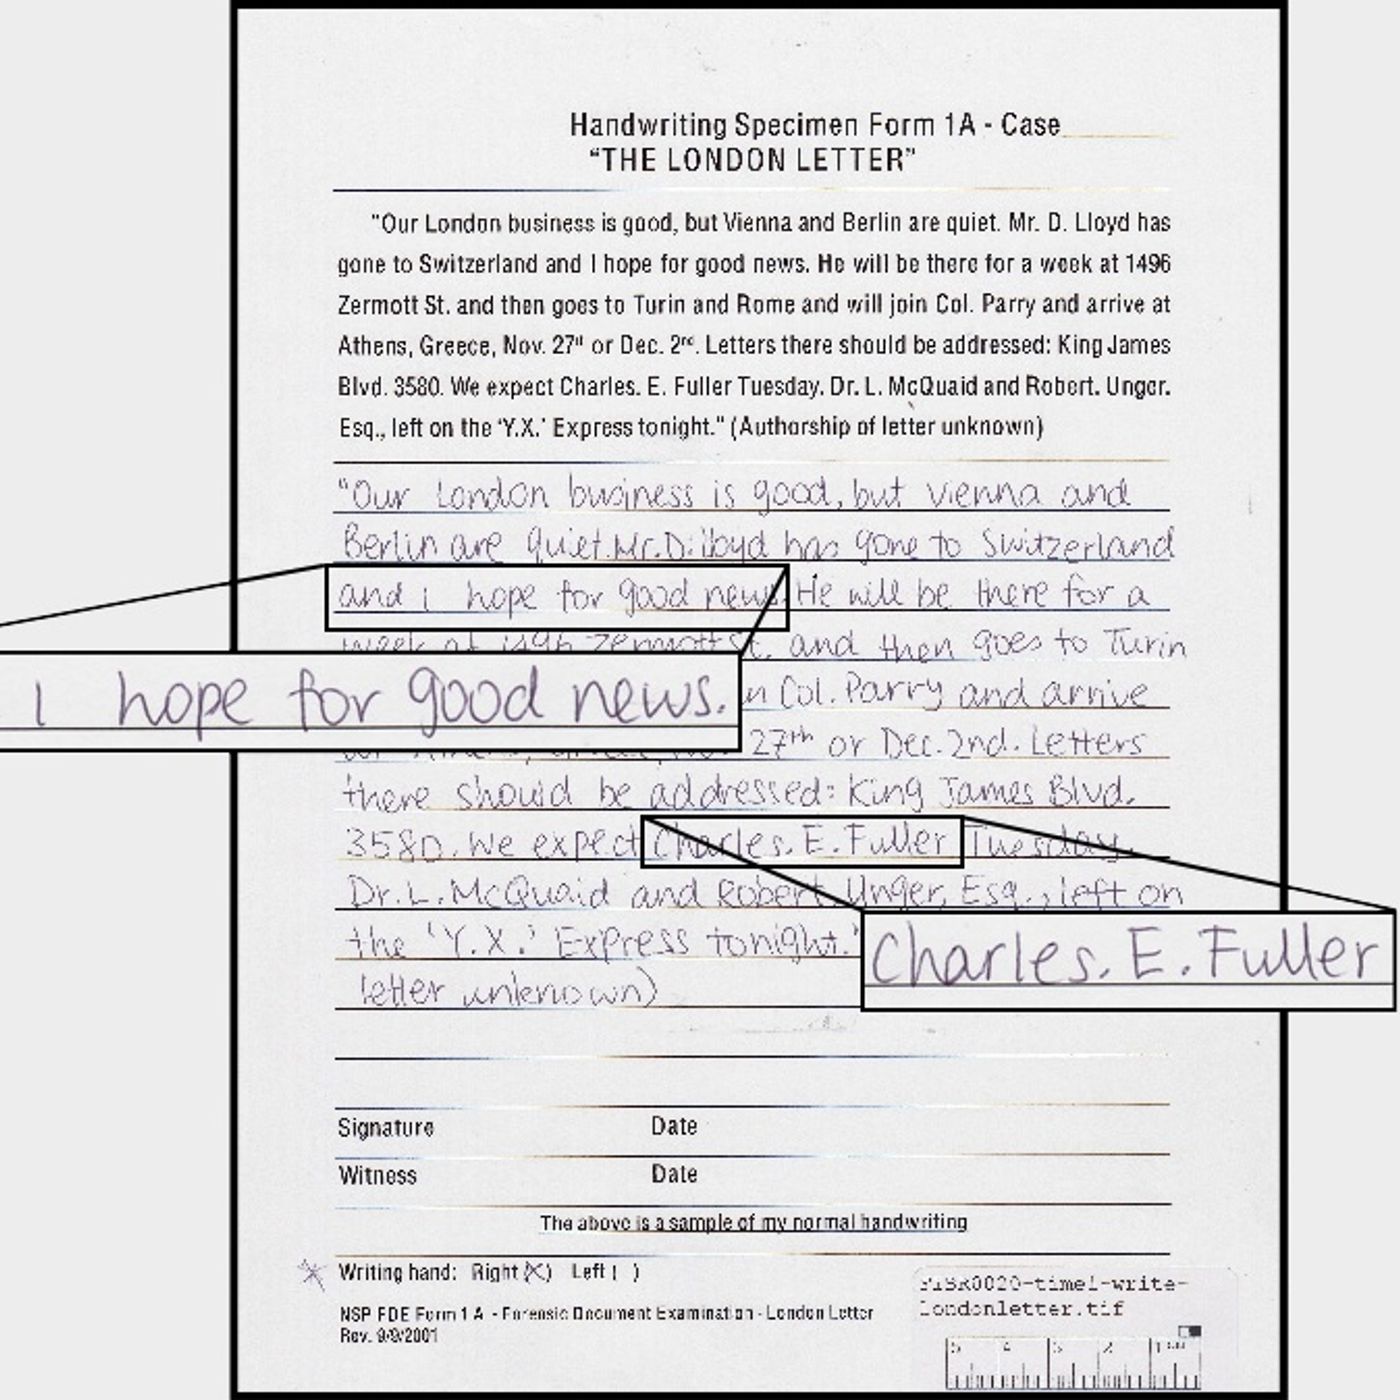 Handwriting Specimen Form 1A - Case
"THE LONDON LETTER"
"Our London business is good, but Vienna and Berlin are quiet. Mr. D. Lloyd has
gone to Switzerland and I hope for good news. He will be there for a week at 1496
Zermott St. and then goes to Turin and Rome and will join Col. Parry and arrive at
Athens, Greece, Nov. 27th or Dec. 2nd. Letters there should be addressed: King James
Blvd. 3580. We expect Charles. E. Fuller Tuesday. Dr. L. McQuaid and Robert. Unger.
Esq., left on the 'Y.X.' Express tonight." (Authorship of letter unknown)
"Our London business is good, but Vienna and
Berlin are quiet. Mr. D. lloyd has gone to Switzerland
and i hope for good news. He will be there for a
week at 1496 Zermott St. and then goes to Turin
i hope for good news.
n Col. Parry and arrive
27th or Dec. 2nd. Letters
there should be addressed: King James Blvd.
3580. We expect Charles. E. Fuller Tuesday.
Dr. L. McQuaid and Robert. Unger, Esq., left on
the 'Y.X.' Express tonight."
Charles. E. Fuller
letter unknown)
Signature Date
Witness Date
The above is a sample of my normal handwriting
Writing hand: Right (X) Left ( )
NSP FDE Form 1 A - Forensic Document Examination - London Letter
Rev. 9/9/2001
FISR0020-time1-write-
londonletter.tif
5 4 3 2 1